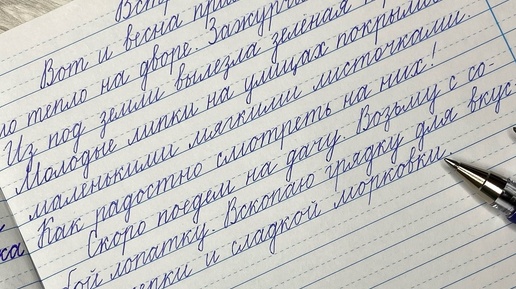 Встр
Вот и весна при
ло тепло на дворе. Зажурча
Из под земли вылезла зелёная
Молодые липки на улицах покрылись
маленькими мягкими листочками.
Как радостно смотреть на них!
Скоро поедем на дачу. Возьму с со-
бой лопатку. Вскопаю грядку для вкус-
репки и сладкой морковки.
ка